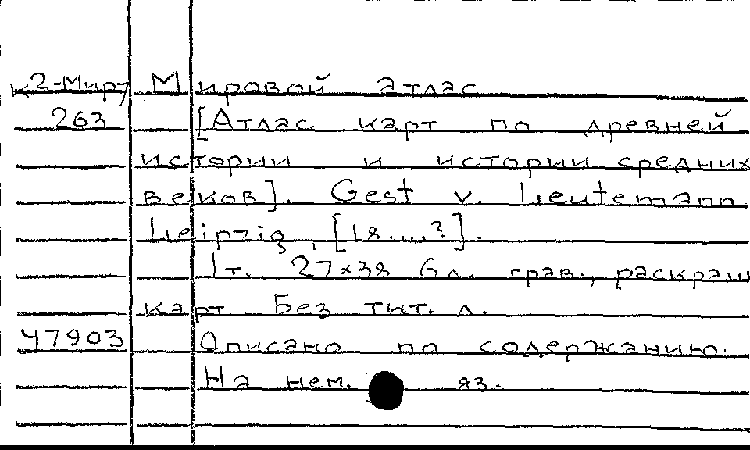 К2-Мир7 Мировой атлас
263 [Атлас карт по древней
истории и истории средних
веков]. Gest v. Leutemann
Leipzig, [18...?].
1 т. 27×38 6 л. грав., раскраш
карт Без тит. л.
47903 Описано по содержанию.
На нем. яз.